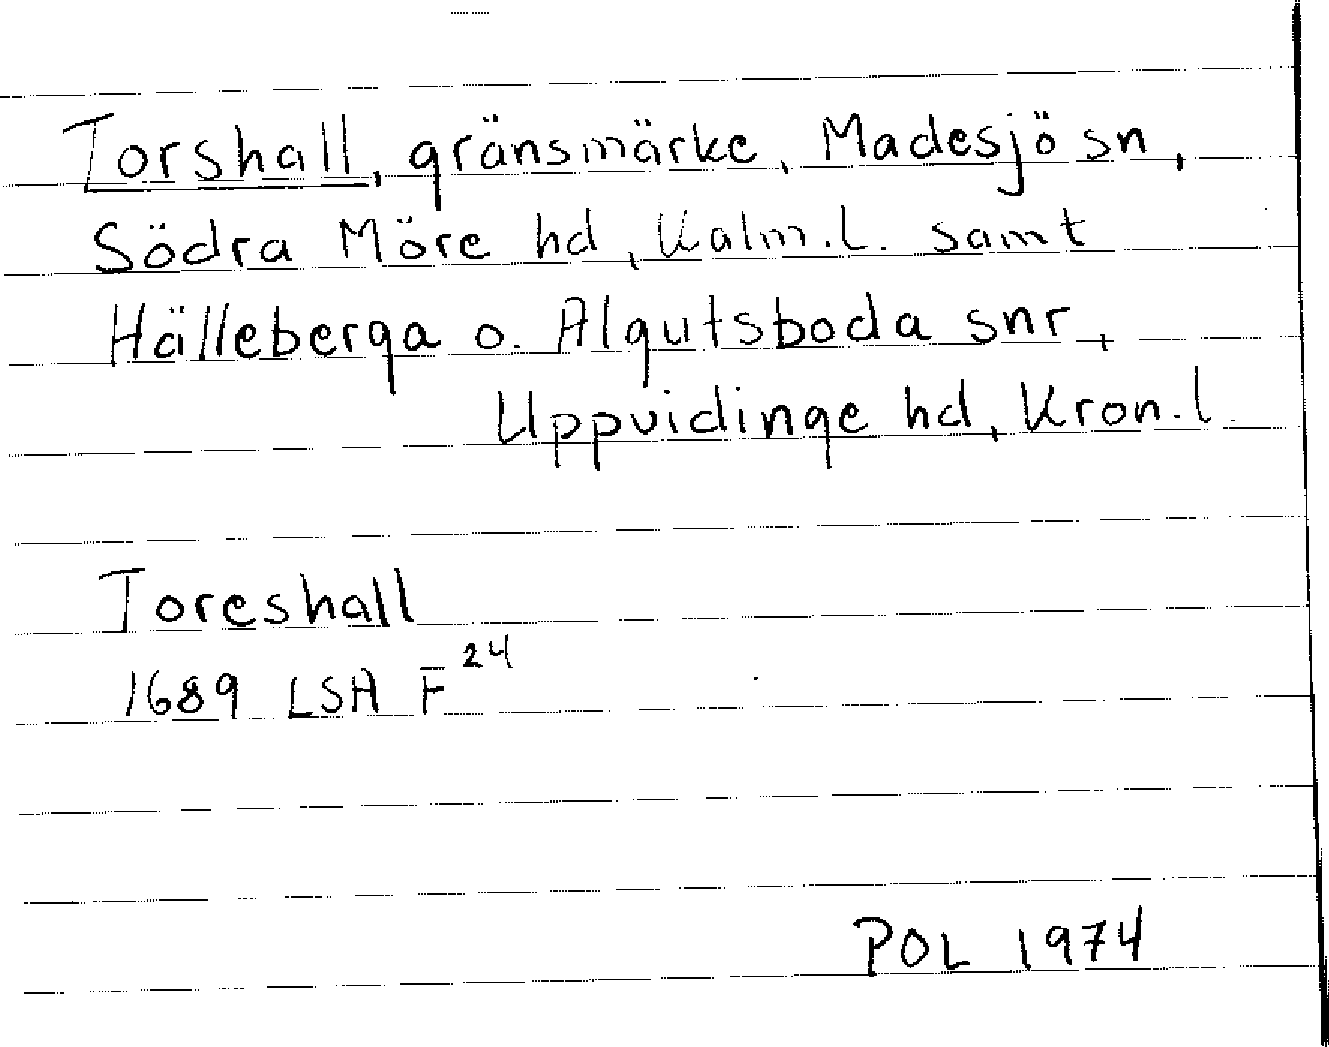 Torshall, gränsmärke, Madesjö sn,
Södra Möre hd, Kalm.l. samt
Hälleberga o. Algutsboda snr,
Uppvidinge hd, Kron.l.
Toreshall
1689 LSA F²⁴
POL 1974